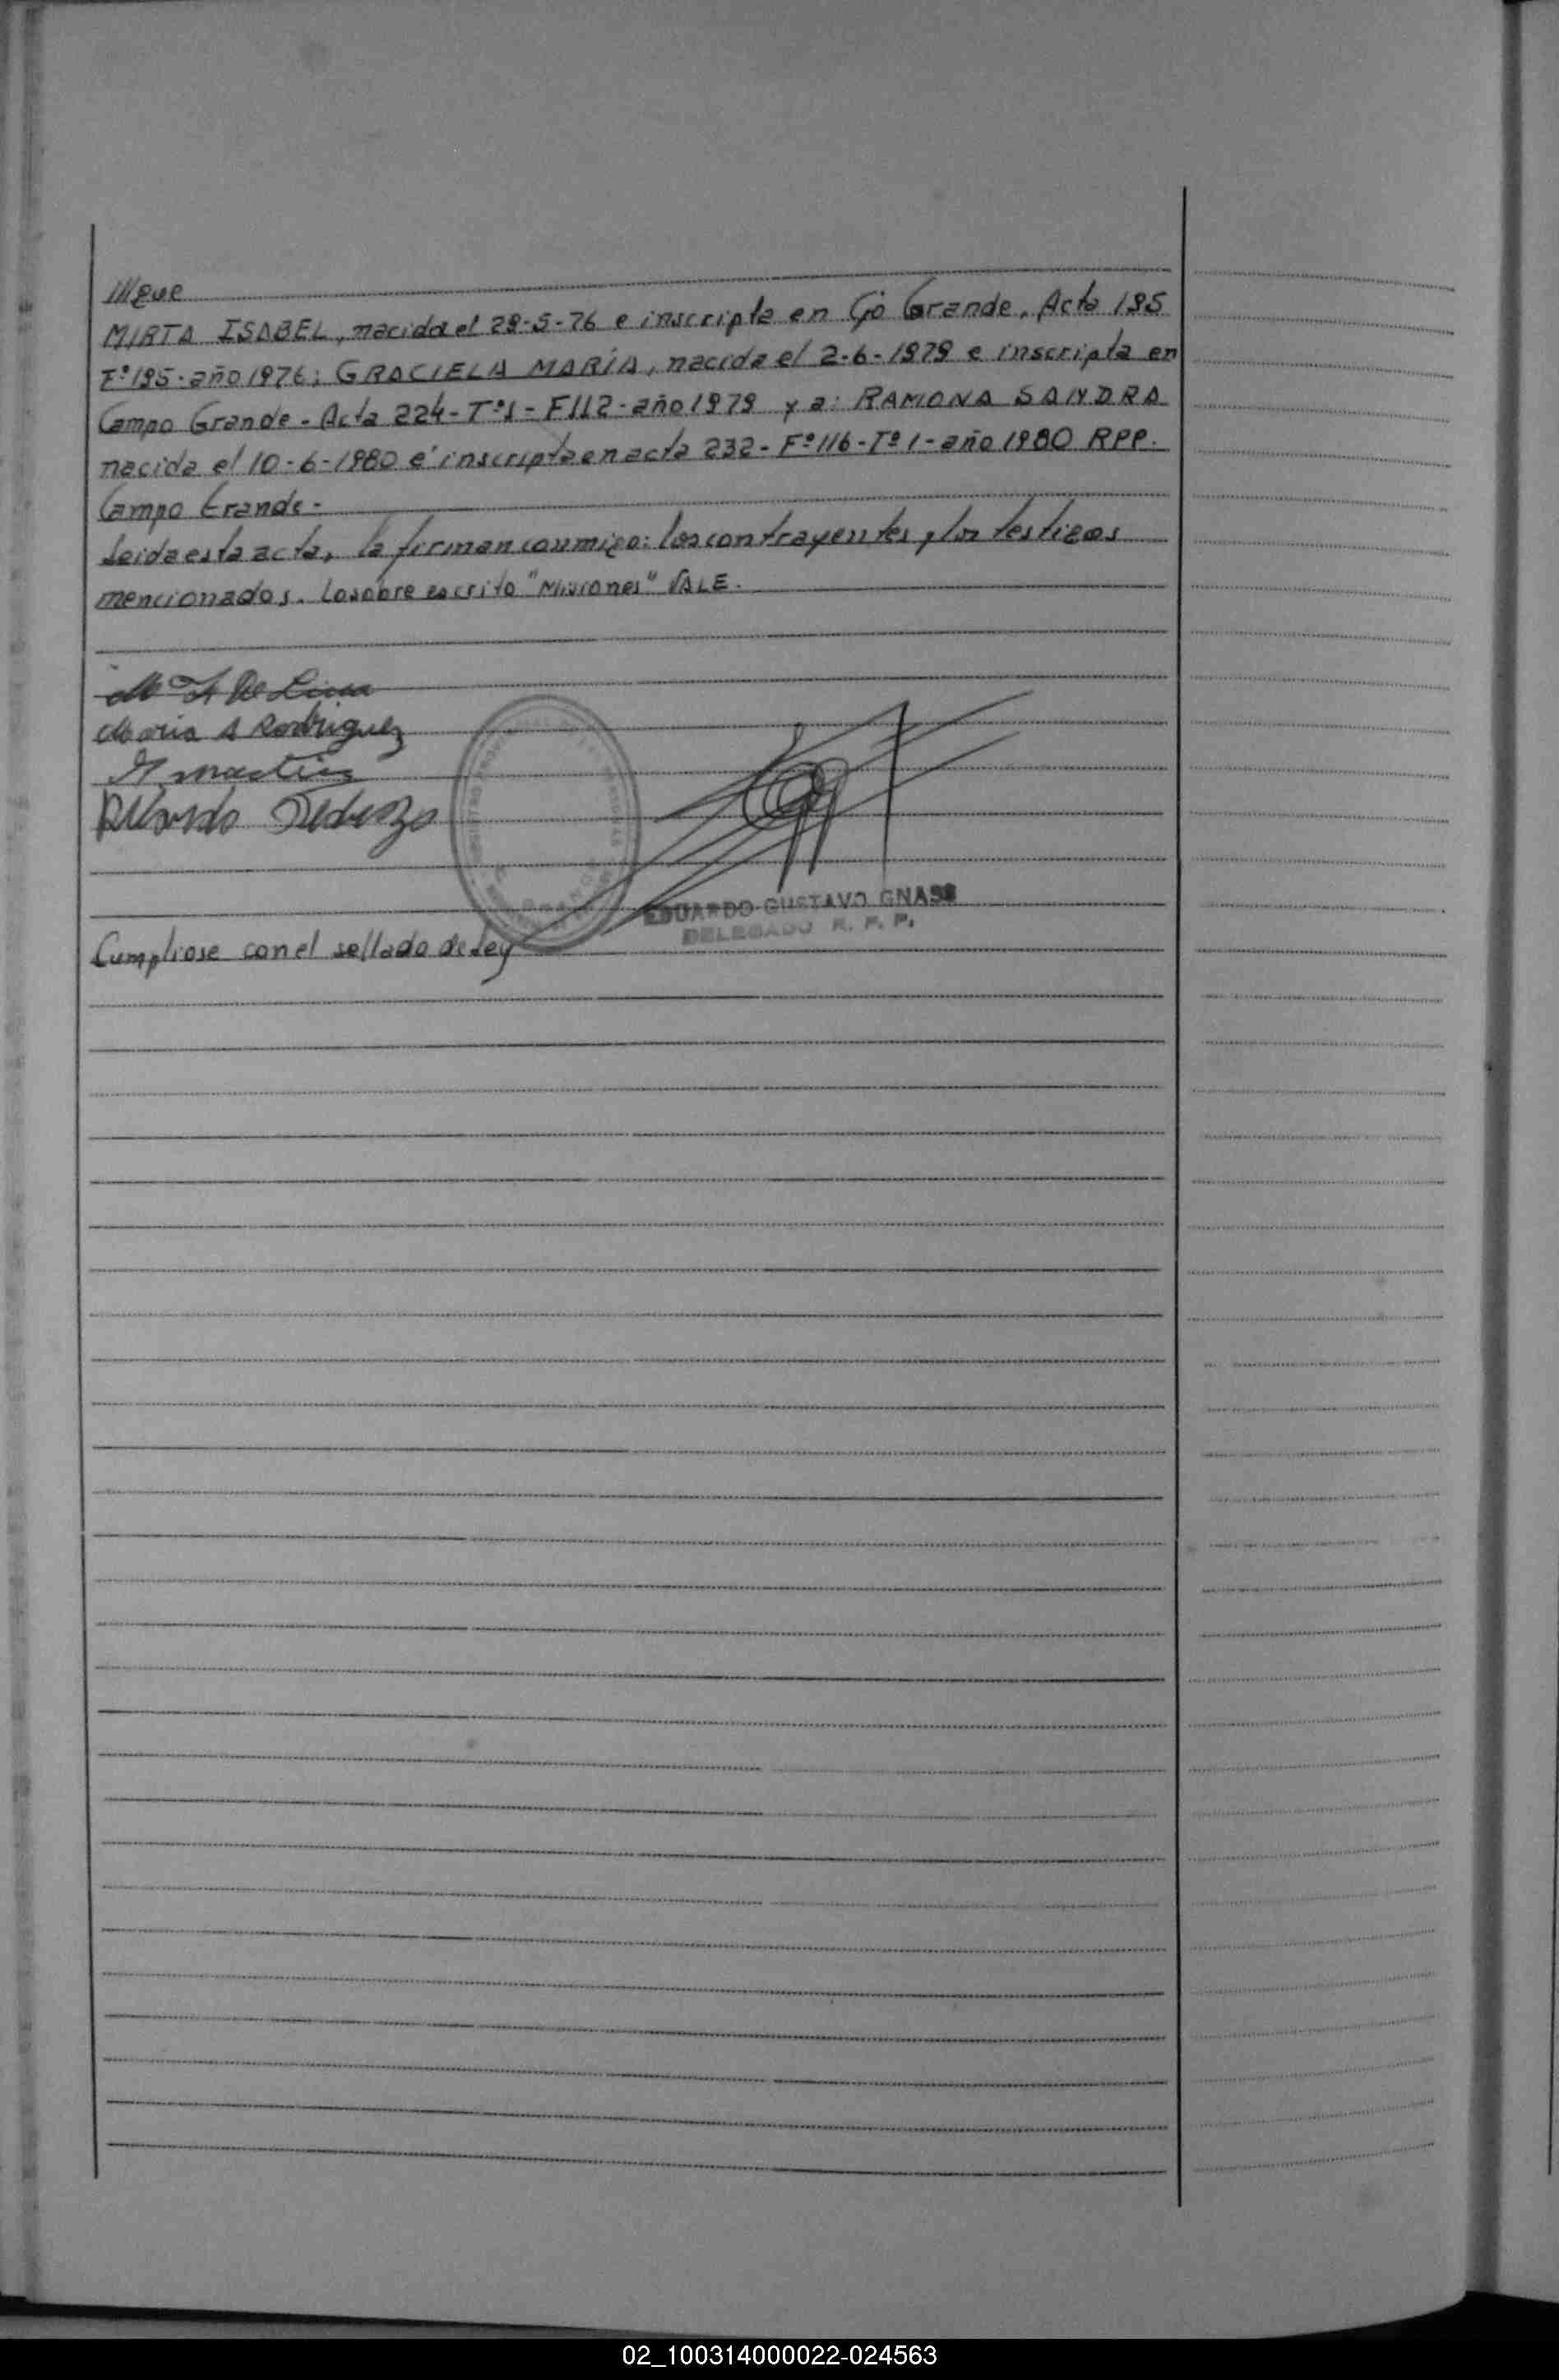 ///gue
MIRTA ISABEL, nacida el 29-5-76 e inscripta en Cpo Grande, Acta 195
Fº195-año 1976; GRACIELA MARÍA, nacida el 2-6-1979 e inscripta en
Campo Grande - Acta 224- Tº1- F112- año 1979 y a: RAMONA SANDRA
nacida el 10-6-1980 e inscripta en acta 232- Fº116-Tº1- año 1980 RPP.
Campo Grande-
Leida esta acta, la firman conmigo: los contrayentes y los testigos
mencionados. Lo sobre escrito "Misiones" VALE.
De Lima
Maria A Rodriguez
Martin
EDUARDO GUSTAVO GNASS
DELEGADO R. P. P.
Cumpliose con el sellado de Ley
02_100314000022-024563